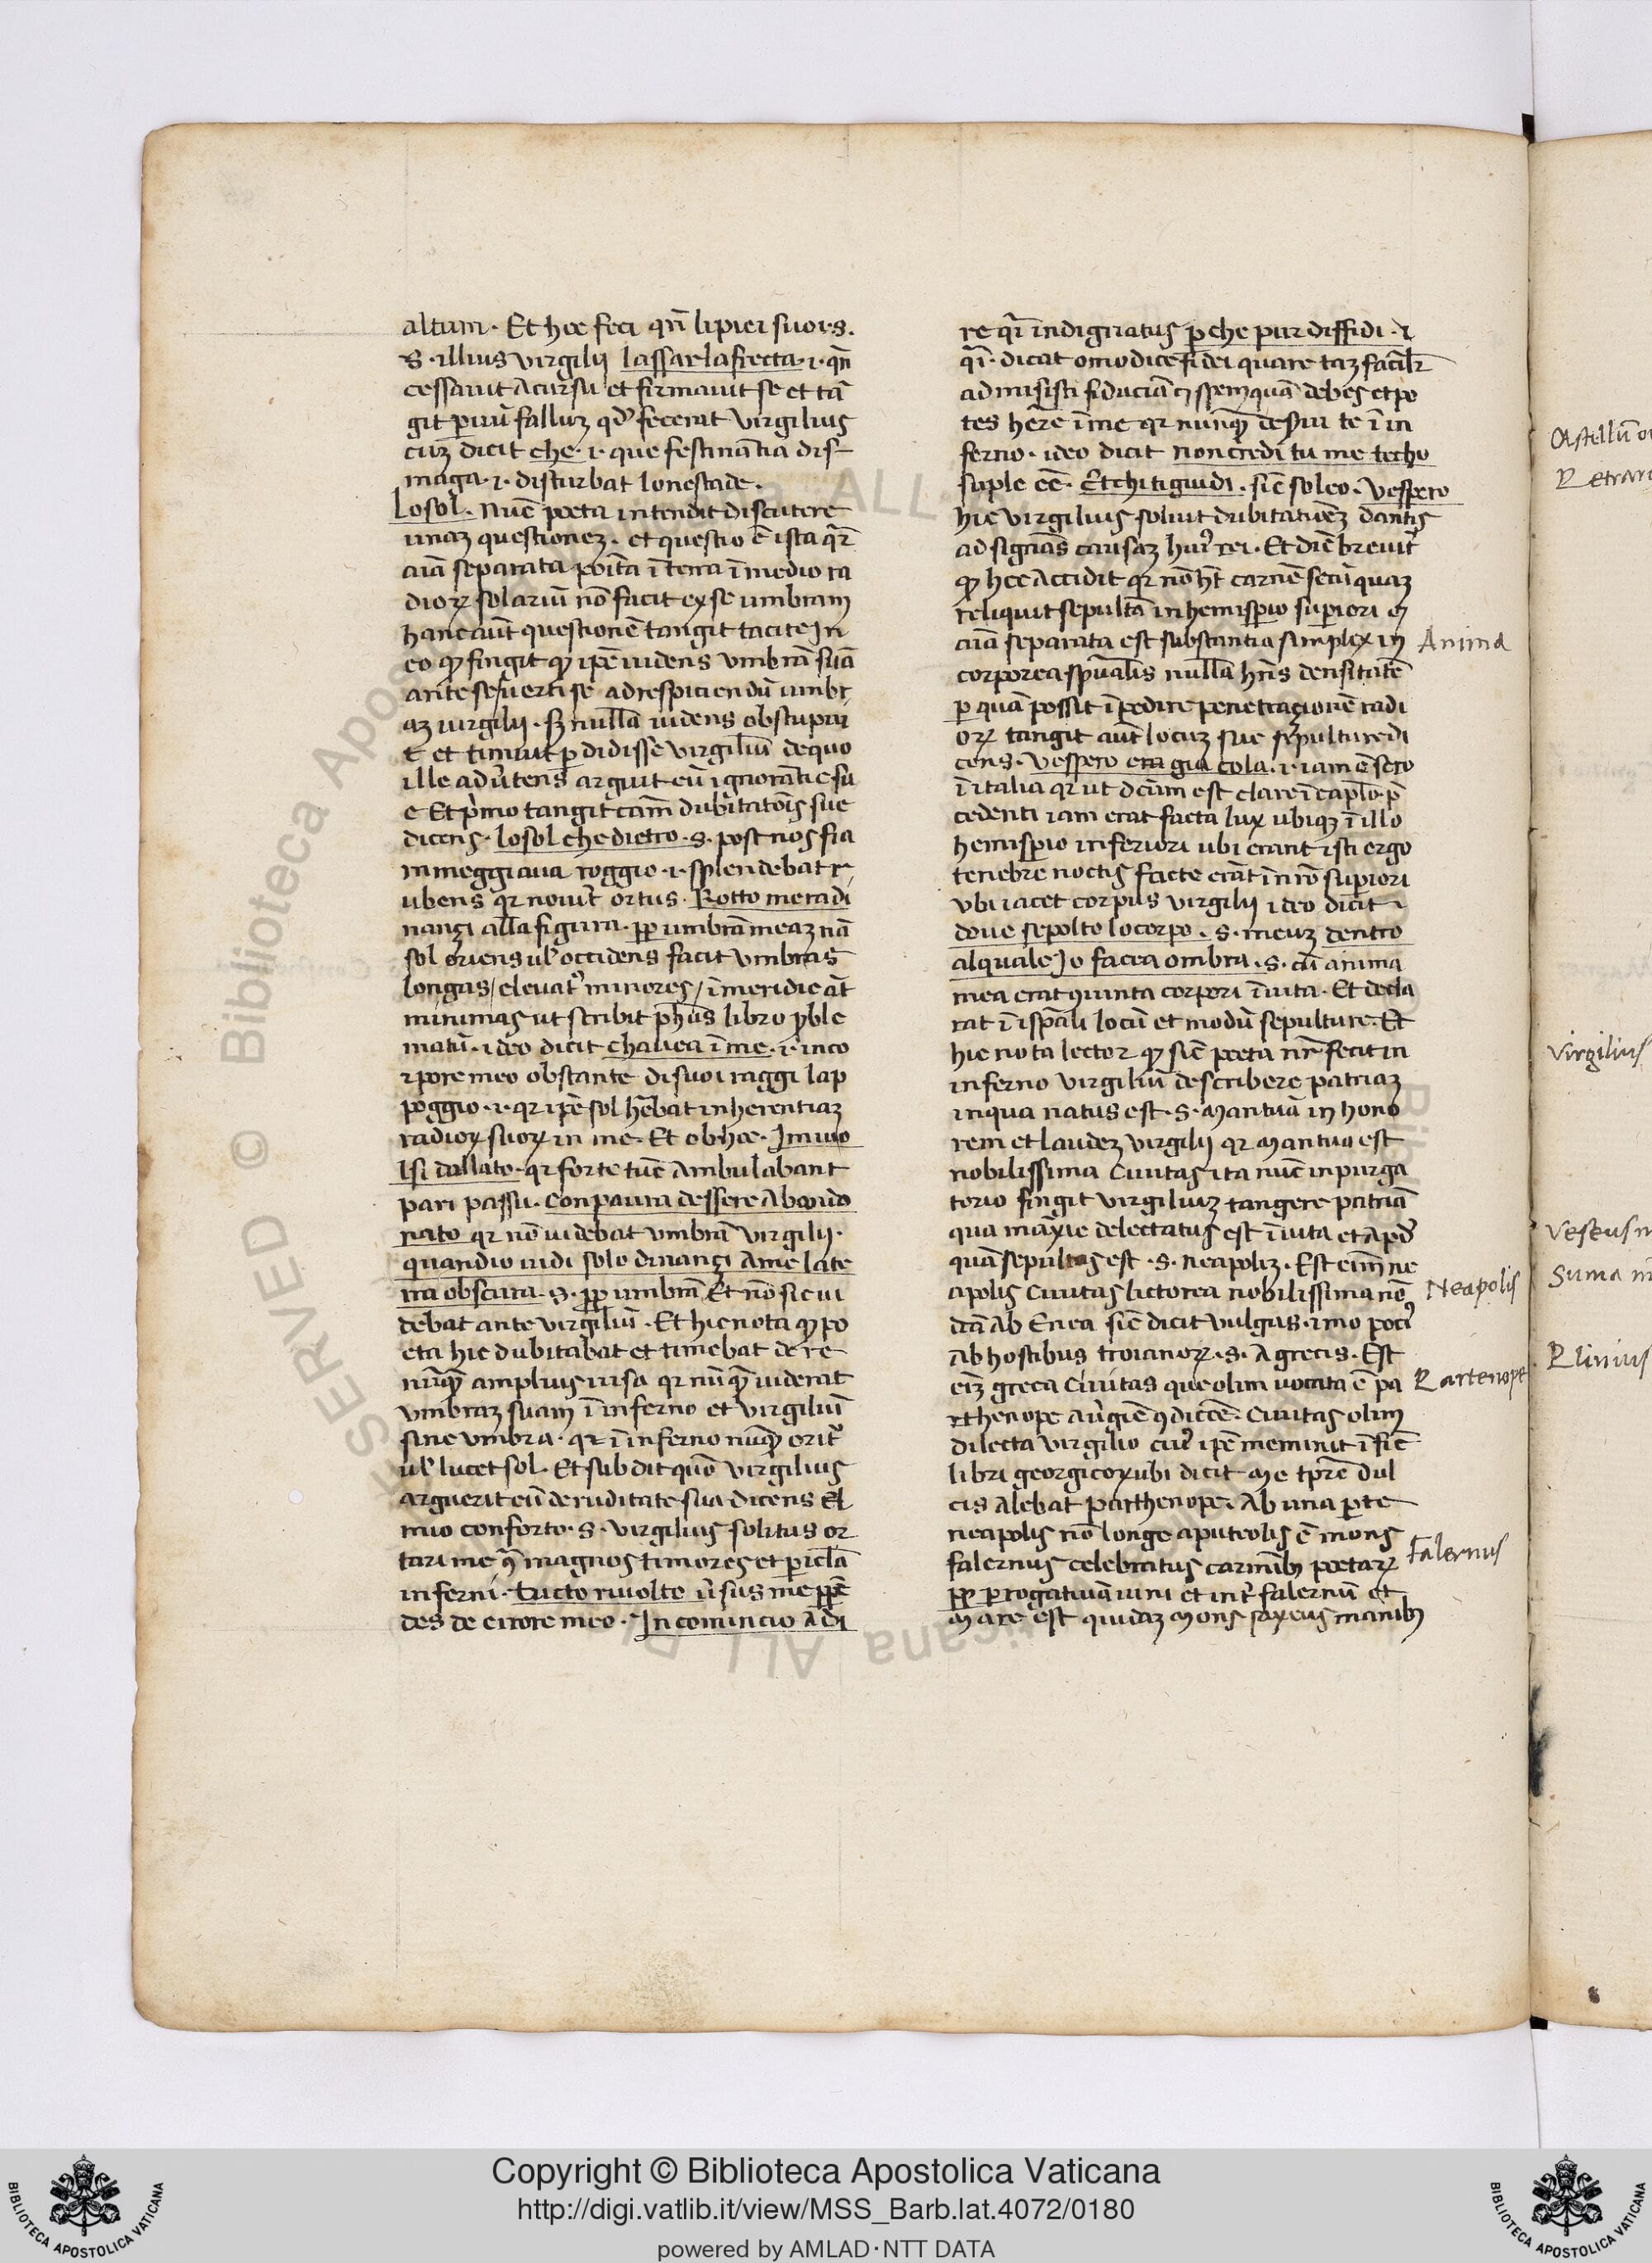 altum. Et hoc feci qn̄ lipiei suoi .s.
s. illius virgilij lassar la frecta .i. qn̄
cessavit a cursu et firmavit se et tā
git parvū falluz qd̓ fecerat virgilius
cuz dicit che .i. que festinantia dis
maga .i. disturbat lonestade.
Losol. Nūc poeta intendit discutere
unaz questionez. et questio ē ista qr̄
aīa separata poīta ī terra ī medio ra
dioꝝ solariū nō facit ex se umbram
hanc aūt questionē tangit tacite In
eo qꝫ fingit qꝫ ipē videns umbrā suā
ante se / vertise ad respiciendū umbr
aꝫ virgilij. sꝫ nullā videns obstupui
t et timuit perdidisse virgiliū de quo
ille adv̓tens arguit eū ignorātie su
e Et p̓mo tangit cām dubitatōis sue
dicens. lo sol che dietro .s. post nos fia
mmeggiava roggio .i. splendebat r
ubens qꝛ novit̓ ortus. Rotto mera di
nanzi alla figura. ꝓp umbrā meaꝫ nā
sol oriens ul̓ occidens facit umbras
longas / elevat᷒ minores / ī meridie āt
minimas ut scribit ph̄us libro ꝓble
matū. ideo dicit chavea ī me .i. in co
rpore meo obstante di suoi raggi lap
poggio .i. qꝛ ipē sol hēbat inherentiaꝫ
radioꝝ suoꝝ in me. Et ob hoc. Jmivo
lsi dallato. qꝛ forte tūc ambulabant
pari passu. con paura dessere abando
nato qꝛ nō videbat umbrā virgilij.
quandio vidi solo dinanzi ame late
rra obscura .s. ꝓp umbrā Et nō sic vi
debat ante virgiliū. Et hic nota qꝫ po
eta hic dubitabat et timebat de re
nūqꝫ amplius visa qꝛ nūqꝫ viderat
umbraꝫ suam ī inferno et virgiliū
sine umbra. qꝛ ī inferno nūqꝫ orit᷒
ul̓ lucet sol. Et subdit quō virgilius
arguerit eū de ruditate sua dicens El
mio conforto .s. virgilius solitus or
tari me ꝯ̄ magnos timores et pericl̄a
inferni. tucto rivolto v̓sus me ꝓpē
des de errore meo. In comincio adi
re qi̅ indignatus per che pur diffidi .i.
qi̅. dicat o modice fidei quare taꝫ facilr̄
admisisti fiduciā et spem quā debes et po
tes hēre ī me qꝛ nunqꝫ deserui te ī in
ferno. ideo dicit non credi tu me techo
suple eē. Et chi ti guidi. sic̄ soleo. Vespero
hic virgilius solvit dubitatiōeꝫ dantis
adsignās causaꝫ hui᷒ rei. Et dic̄ brevit̓
qꝫ hec accidit qꝛ nō ht̄ carnē secū quaꝫ
reliquit sepultā in hemisperio superiori et
aīa separata est substantia simplex in
corporea spūalis nullā hn̄s densitatē
per quā possit īpedire penetracionē radi
oꝝ tangit aūt locuꝫ sue sepulture di
cens. Vespero era gia cola .i. iam ē sero
ī italia qꝛ ut dcūm est clare ī caplō p̄
cedenti iam erat facta lux ubiqꝫ ī illo
hemisperio inferiori ubi erant isti ergo
tenebre noctis facte erāt ī nr̄o superiori
ubi iacet corpus virgilij ideo dicit
dove sepolto lo corpo .s. meuꝫ dentro
alquale Jo facea ombra .s. cū anima
mea erat ꝯiuncta corpori ī vita. Et decla
rat ī isp̄ali locū et modū sepulture. Et
hic nota lector qꝫ sic̄ poeta nr̄ fecit in
inferno virgiliū describere patriaꝫ
in qua natus est .s. mantuā in hono
rem et laudeꝫ virgilij qꝛ mantua est
nobilissima civitas ita nūc in purga
torio fingit virgiliuꝫ tangere patriā
qua maxīe delectatus est ī vita et apd̓
quā sepultus est .s. neapoliꝫ. Est eīm ne
apolis civitas lictorea nobilissima nō
dc̄ā ab Enea sic̄ dicit vulgus. imo poci᷒
ab hostibus troianoꝝ .s. a grecis. Est
eīꝫ greca civitas que olim vocata ē pa
rthenope a v̓gīe ꝯdiccē. civitas olim
dilecta virgilio cui᷒ ipē meminit ī fīe
libri georgicoꝝ ubi dicit me tpr̄e dul
cis alebat parthenope. Ab una parte
neapolis nō longe a puteolis ē mons
falernus celebratus carminibꝫ poetaꝝ
ꝓp prerogativā vini et int̓ falernū et
mare est quidaꝫ mons saxeus manibꝫ
Anima
Neapolis
Partenope
Falernus
Virgilius
Plinius
Copyright © Biblioteca Apostolica Vaticana
http://digi.vatlib.it/view/MSS_Barb.lat.4072/0180
powered by AMLAD·NTT DATA